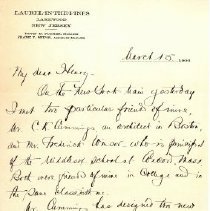 LAUREL-IN-THE-PINES
LAKEWOOD
NEW JERSEY
March 15, 1906
My dear Henry,
On the New York train yesterday
I met two particular friends of mine,
Mr. C K Cummings an architect in Boston,
and Mr. Frederick Winsor who is principal
of the Middlesex School at Concord, Mass.
Both were friends of mine in College and in
the same class with me.
Mr. Cummings has designed two new